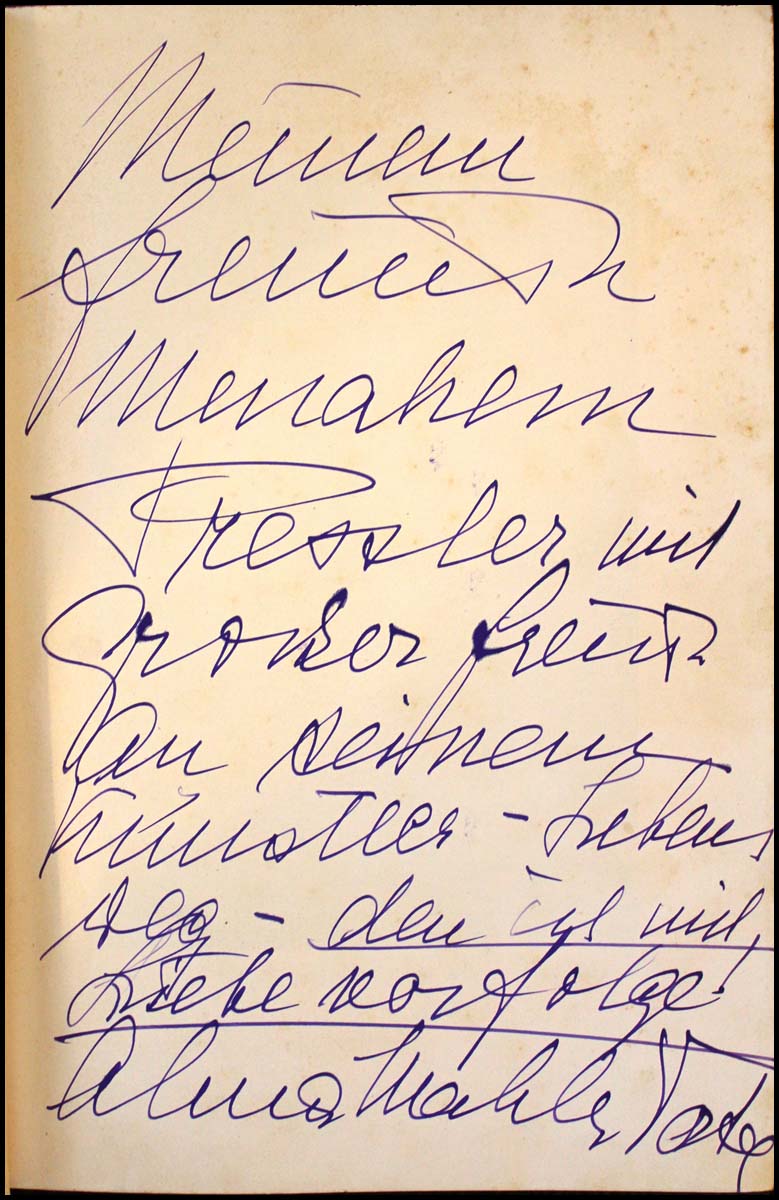 Meinem
Freunde
Menahem
Pressler mit
großer Freude
an seinem
Künstler – Lebens
weg – den ich mit
Liebe verfolge!
Alma Mahler